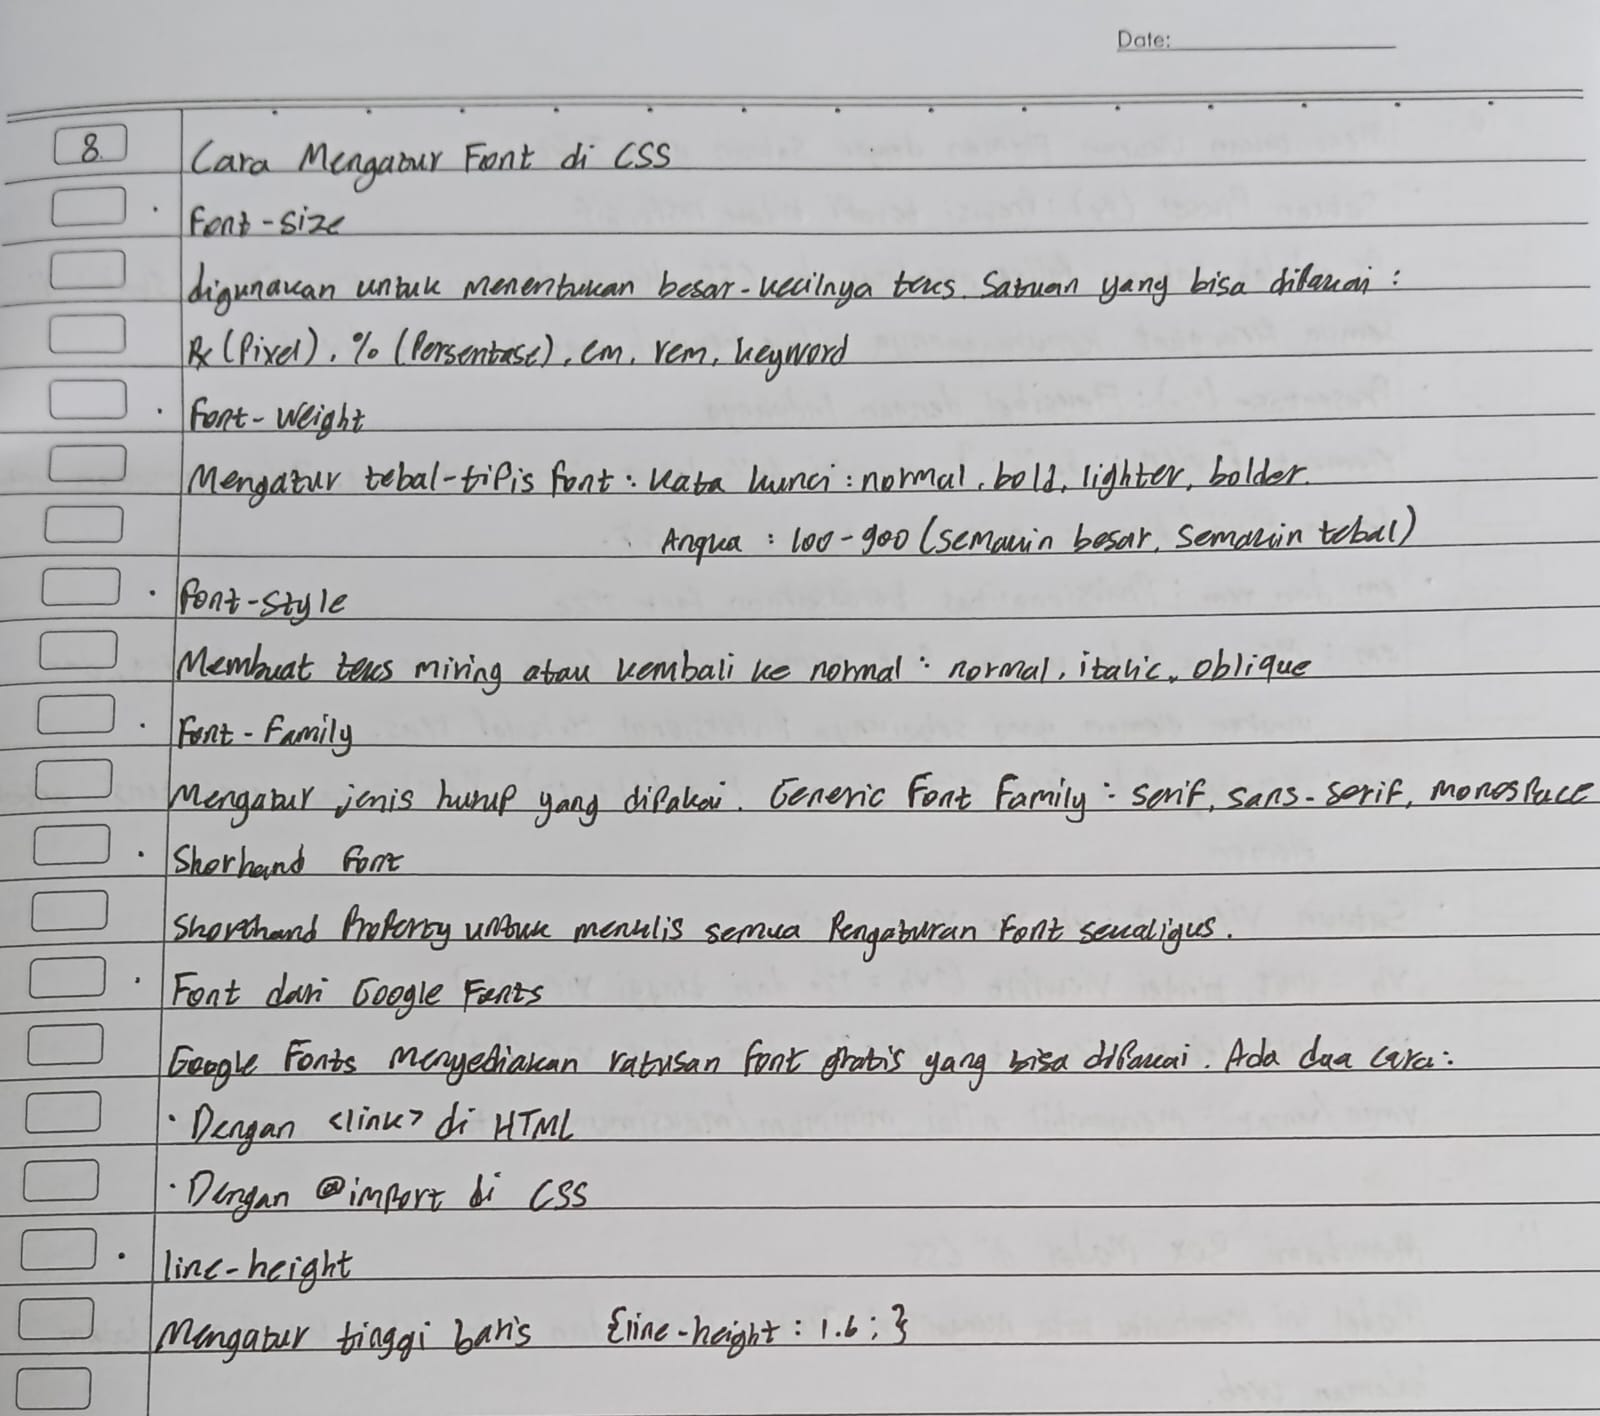 Date:
8. Cara Mengatur Font di CSS
· Font-size
digunakan untuk menentukan besar-kecilnya teks. Satuan yang bisa dipakai :
Px (Pixel), % (Persentase), em, rem, keyword
· Font-Weight
Mengatur tebal-tipis font : Kata kunci : normal, bold, lighter, bolder.
Angka : 100-900 (semakin besar, semakin tebal)
· Font-Style
Membuat teks miring atau kembali ke normal : normal, italic, oblique
· Font-Family
Mengatur jenis huruf yang dipakai. Generic Font Family : serif, sans-serif, monospace
· Shorhand Font
Shorthand Property untuk menulis semua Pengaturan Font sekaligus.
· Font dari Google Fonts
Google Fonts menyediakan ratusan font gratis yang bisa dipakai. Ada dua cara :
· Dengan <link> di HTML
· Dengan @import di CSS
· line-height
Mengatur tinggi baris {line-height : 1.6 ; }